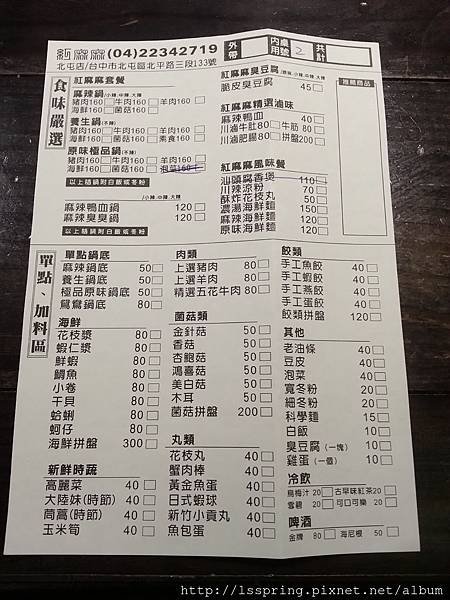 紅麻麻 (04)22342719
北屯店/台中市北屯區北平路三段133號
外帶
內用 桌號 2
共計
食味嚴選
紅麻麻套餐
麻辣鍋/小辣.中辣.大辣
豬肉160 牛肉160 羊肉160
海鮮160 菌菇160
養生鍋(不辣)
豬肉160 牛肉160 羊肉160
海鮮160 菌菇160 素食160
原味極品鍋(不辣)
豬肉160 牛肉160 羊肉160
海鮮160 菌菇160 泡菜160
以上鍋附白飯或冬粉
/小辣.中辣.大辣
麻辣鴨血鍋 120
麻辣臭臭鍋 120
以上鍋附白飯或冬粉
紅麻麻臭豆腐/微辣.小辣.中辣.大辣
脆皮臭豆腐 45
紅麻麻精選滷味
麻辣鴨血 40
川滷牛肚80 牛筋 80
川滷肥腸80 拼盤200
紅麻麻風味餐
汕頭腐香煲 110
川辣涼粉 70
酥炸花枝丸 50
濃湯海鮮麵 150
麻辣海鮮麵 120
原味海鮮麵 120
推薦商品
單點、加料區
單點鍋底
麻辣鍋底 50
養生鍋底 50
極品原味鍋底 50
鴛鴦鍋底 80
海鮮
花枝漿 80
蝦仁漿 80
鮮蝦 80
鯛魚 80
小卷 80
干貝 80
蛤蜊 80
蚵仔 80
海鮮拼盤 300
新鮮時蔬
高麗菜 40
大陸妹(時節) 40
茼蒿(時節) 40
玉米筍 40
肉類
上選豬肉 80
上選羊肉 80
精選五花牛肉 80
菌菇類
金針菇 50
香菇 50
杏鮑菇 50
鴻喜菇 50
美白菇 50
木耳 50
菌菇拼盤 200
丸類
花枝丸 40
蟹肉棒 40
黃金魚蛋 40
日式蝦球 40
新竹小貢丸 40
魚包蛋 40
餃類
手工魚餃 40
手工蝦餃 40
手工燕餃 40
手工蛋餃 40
餃類拼盤 120
其他
老油條 40
豆皮 40
泡菜 40
寬冬粉 20
細冬粉 20
科學麵 15
白飯 10
臭豆腐(一塊) 10
雞蛋(一個) 10
冷飲
烏梅汁 20 古早味紅茶20
雪碧 20 可口可樂 20
啤酒
金牌 80 海尼根 50
http://lsspring.pixnet.net/album